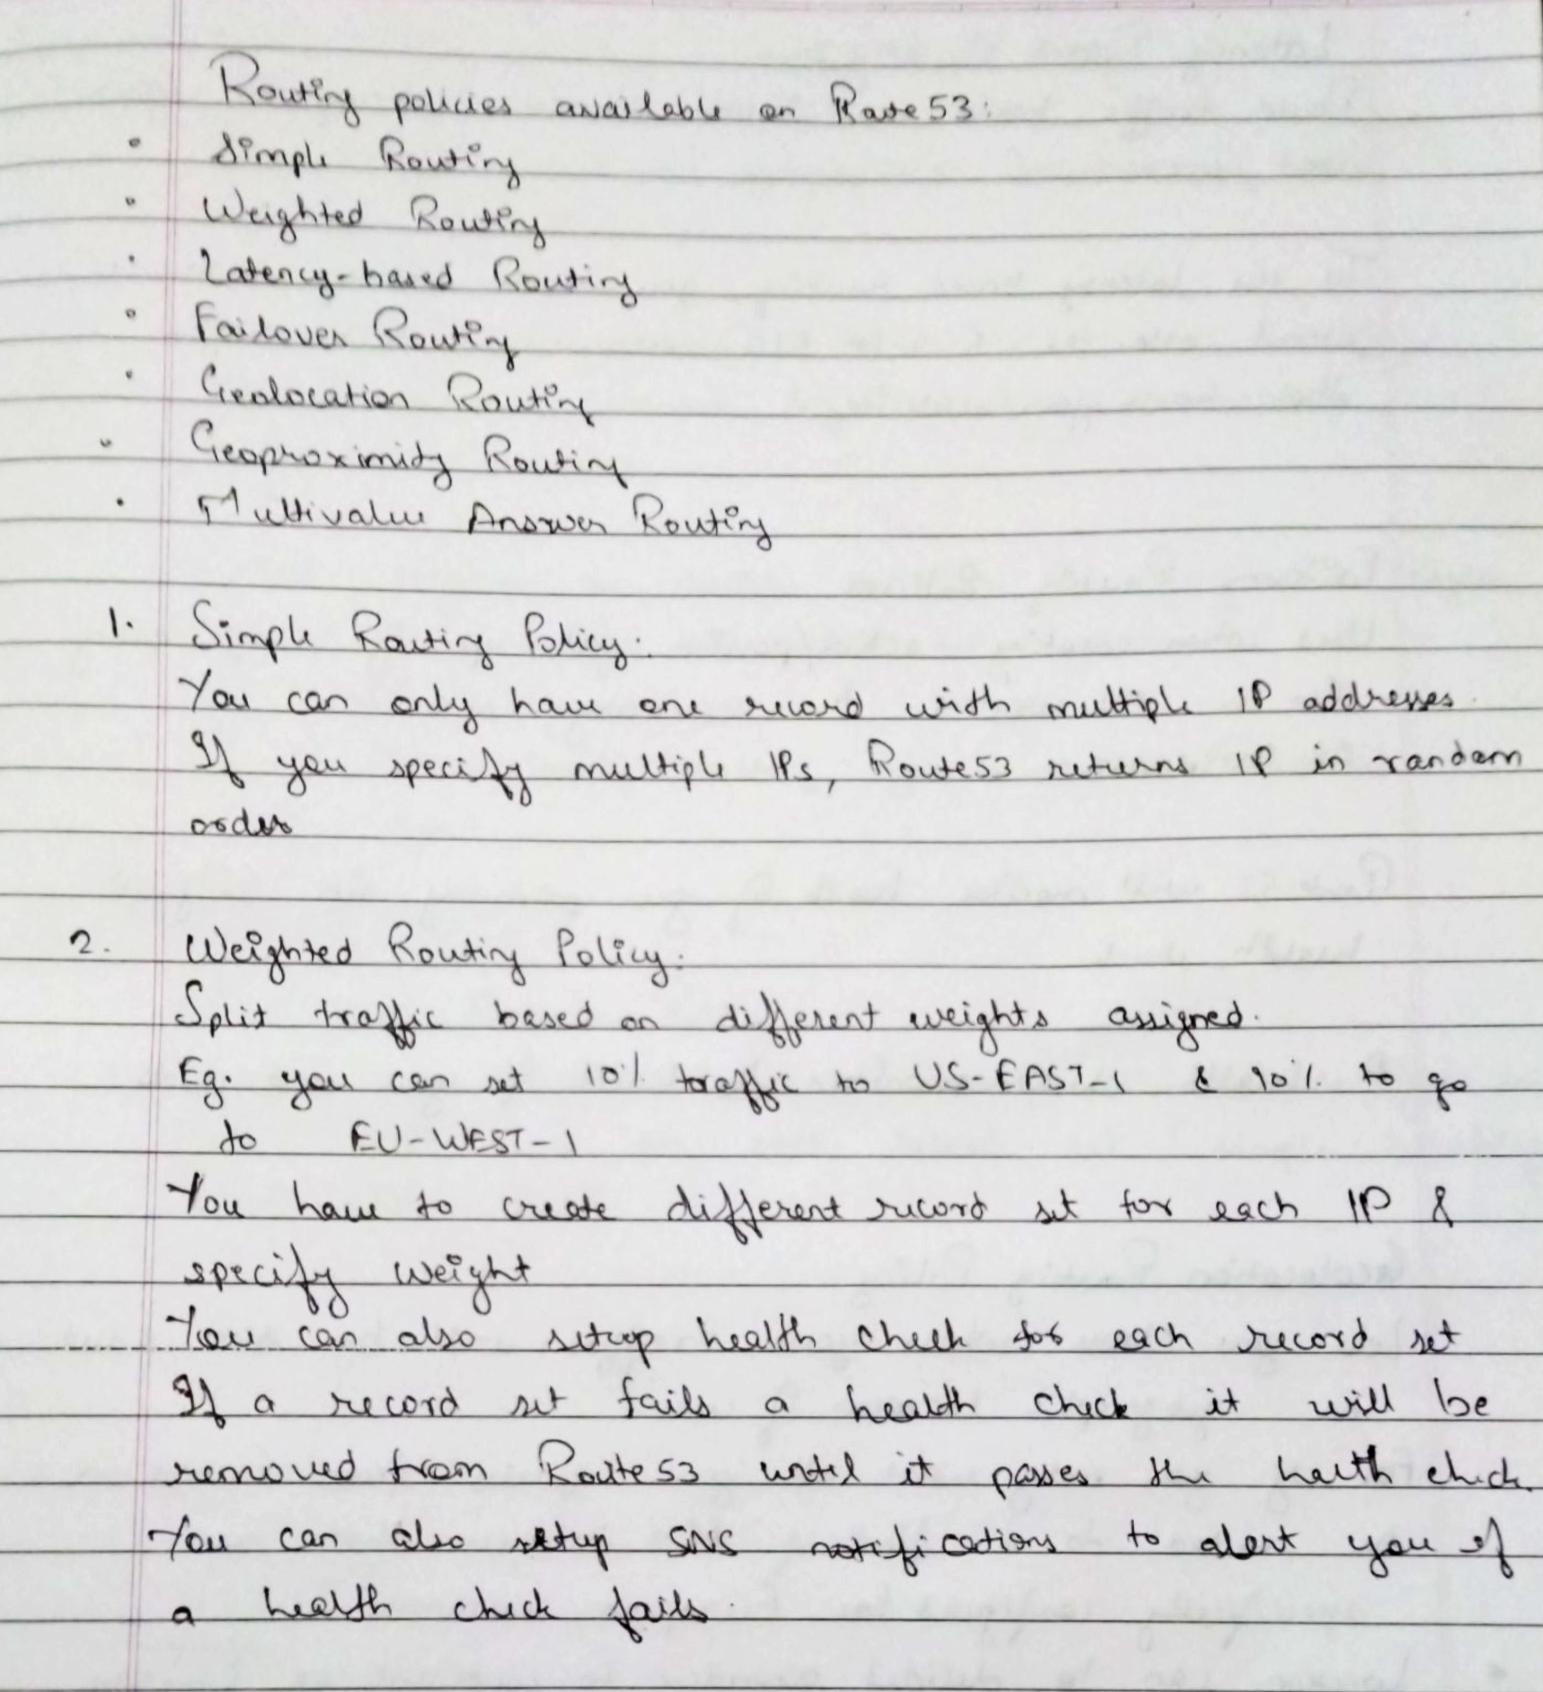 Routing policies available on Route53:
• Simple Routing
• Weighted Routing
• Latency-based Routing
• Failover Routing
• Geolocation Routing
• Geoproximity Routing
• Multivalue Answer Routing
1. Simple Routing Policy:
You can only have one record with multiple IP addresses.
If you specify multiple IPs, Route53 returns IP in random
order
2. Weighted Routing Policy:
Split traffic based on different weights assigned.
Eg. you can set 10% traffic to US-EAST-1 & 90% to go
to EU-WEST-1
You have to create different record set for each IP &
specify weight
You can also setup health check for each record set
If a record set fails a health check it will be
removed from Route53 until it passes the health check.
You can also setup SNS notifications to alert you if
a health check fails.